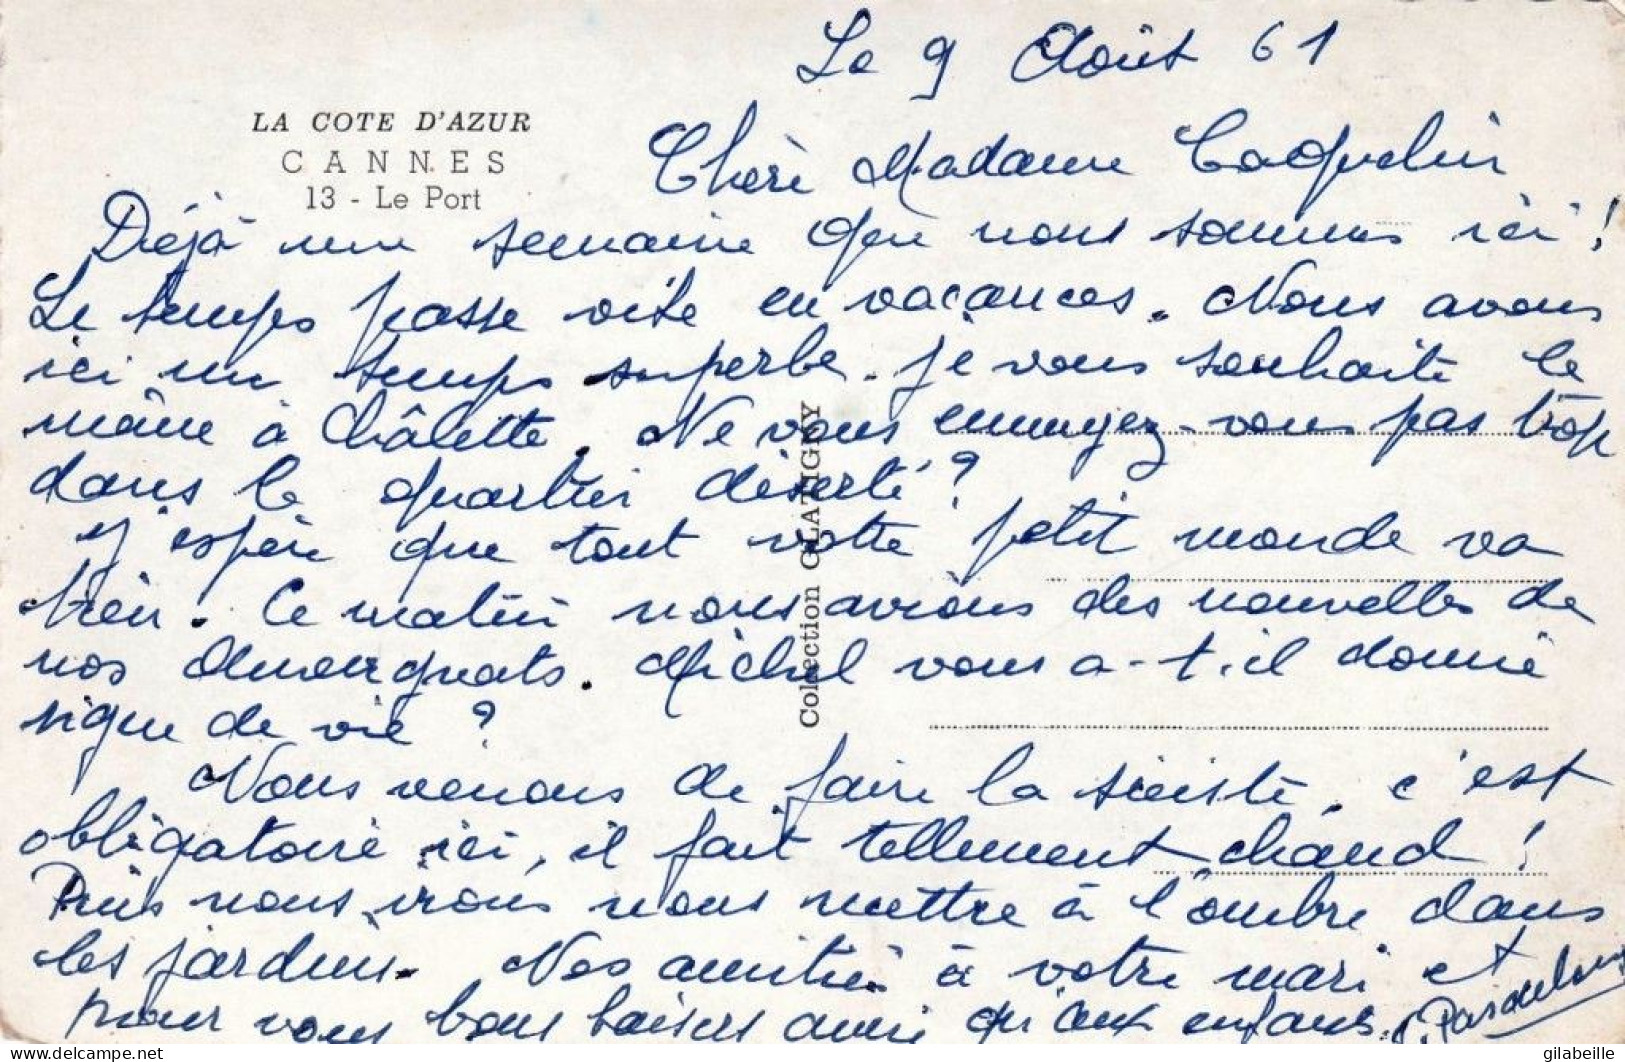 Le 9 Août 61
LA COTE D'AZUR
CANNES
13 - Le Port
Chère Madame Coquelin
Déjà une semaine que nous sommes ici !
Le temps passe vite en vacances. Nous avons
ici un temps superbe. Je vous souhaite le
même à Châlette. Ne vous ennuyez-vous pas trop
dans le quartier déserté ?
J'espère que tout votre petit monde va
bien. Ce matin nous avions des nouvelles de
nos Auvergnats. Michel vous a-t-il donné
signe de vie ?
Nous venons de faire la sieste, c'est
obligatoire ici, il fait tellement chaud !
Puis nous irons nous mettre à l'ombre dans
les jardins. Nos amitiés à votre mari et
pour vous bons baisers ainsi qu'aux enfants.
Collection GLATIGNY
gilabeille